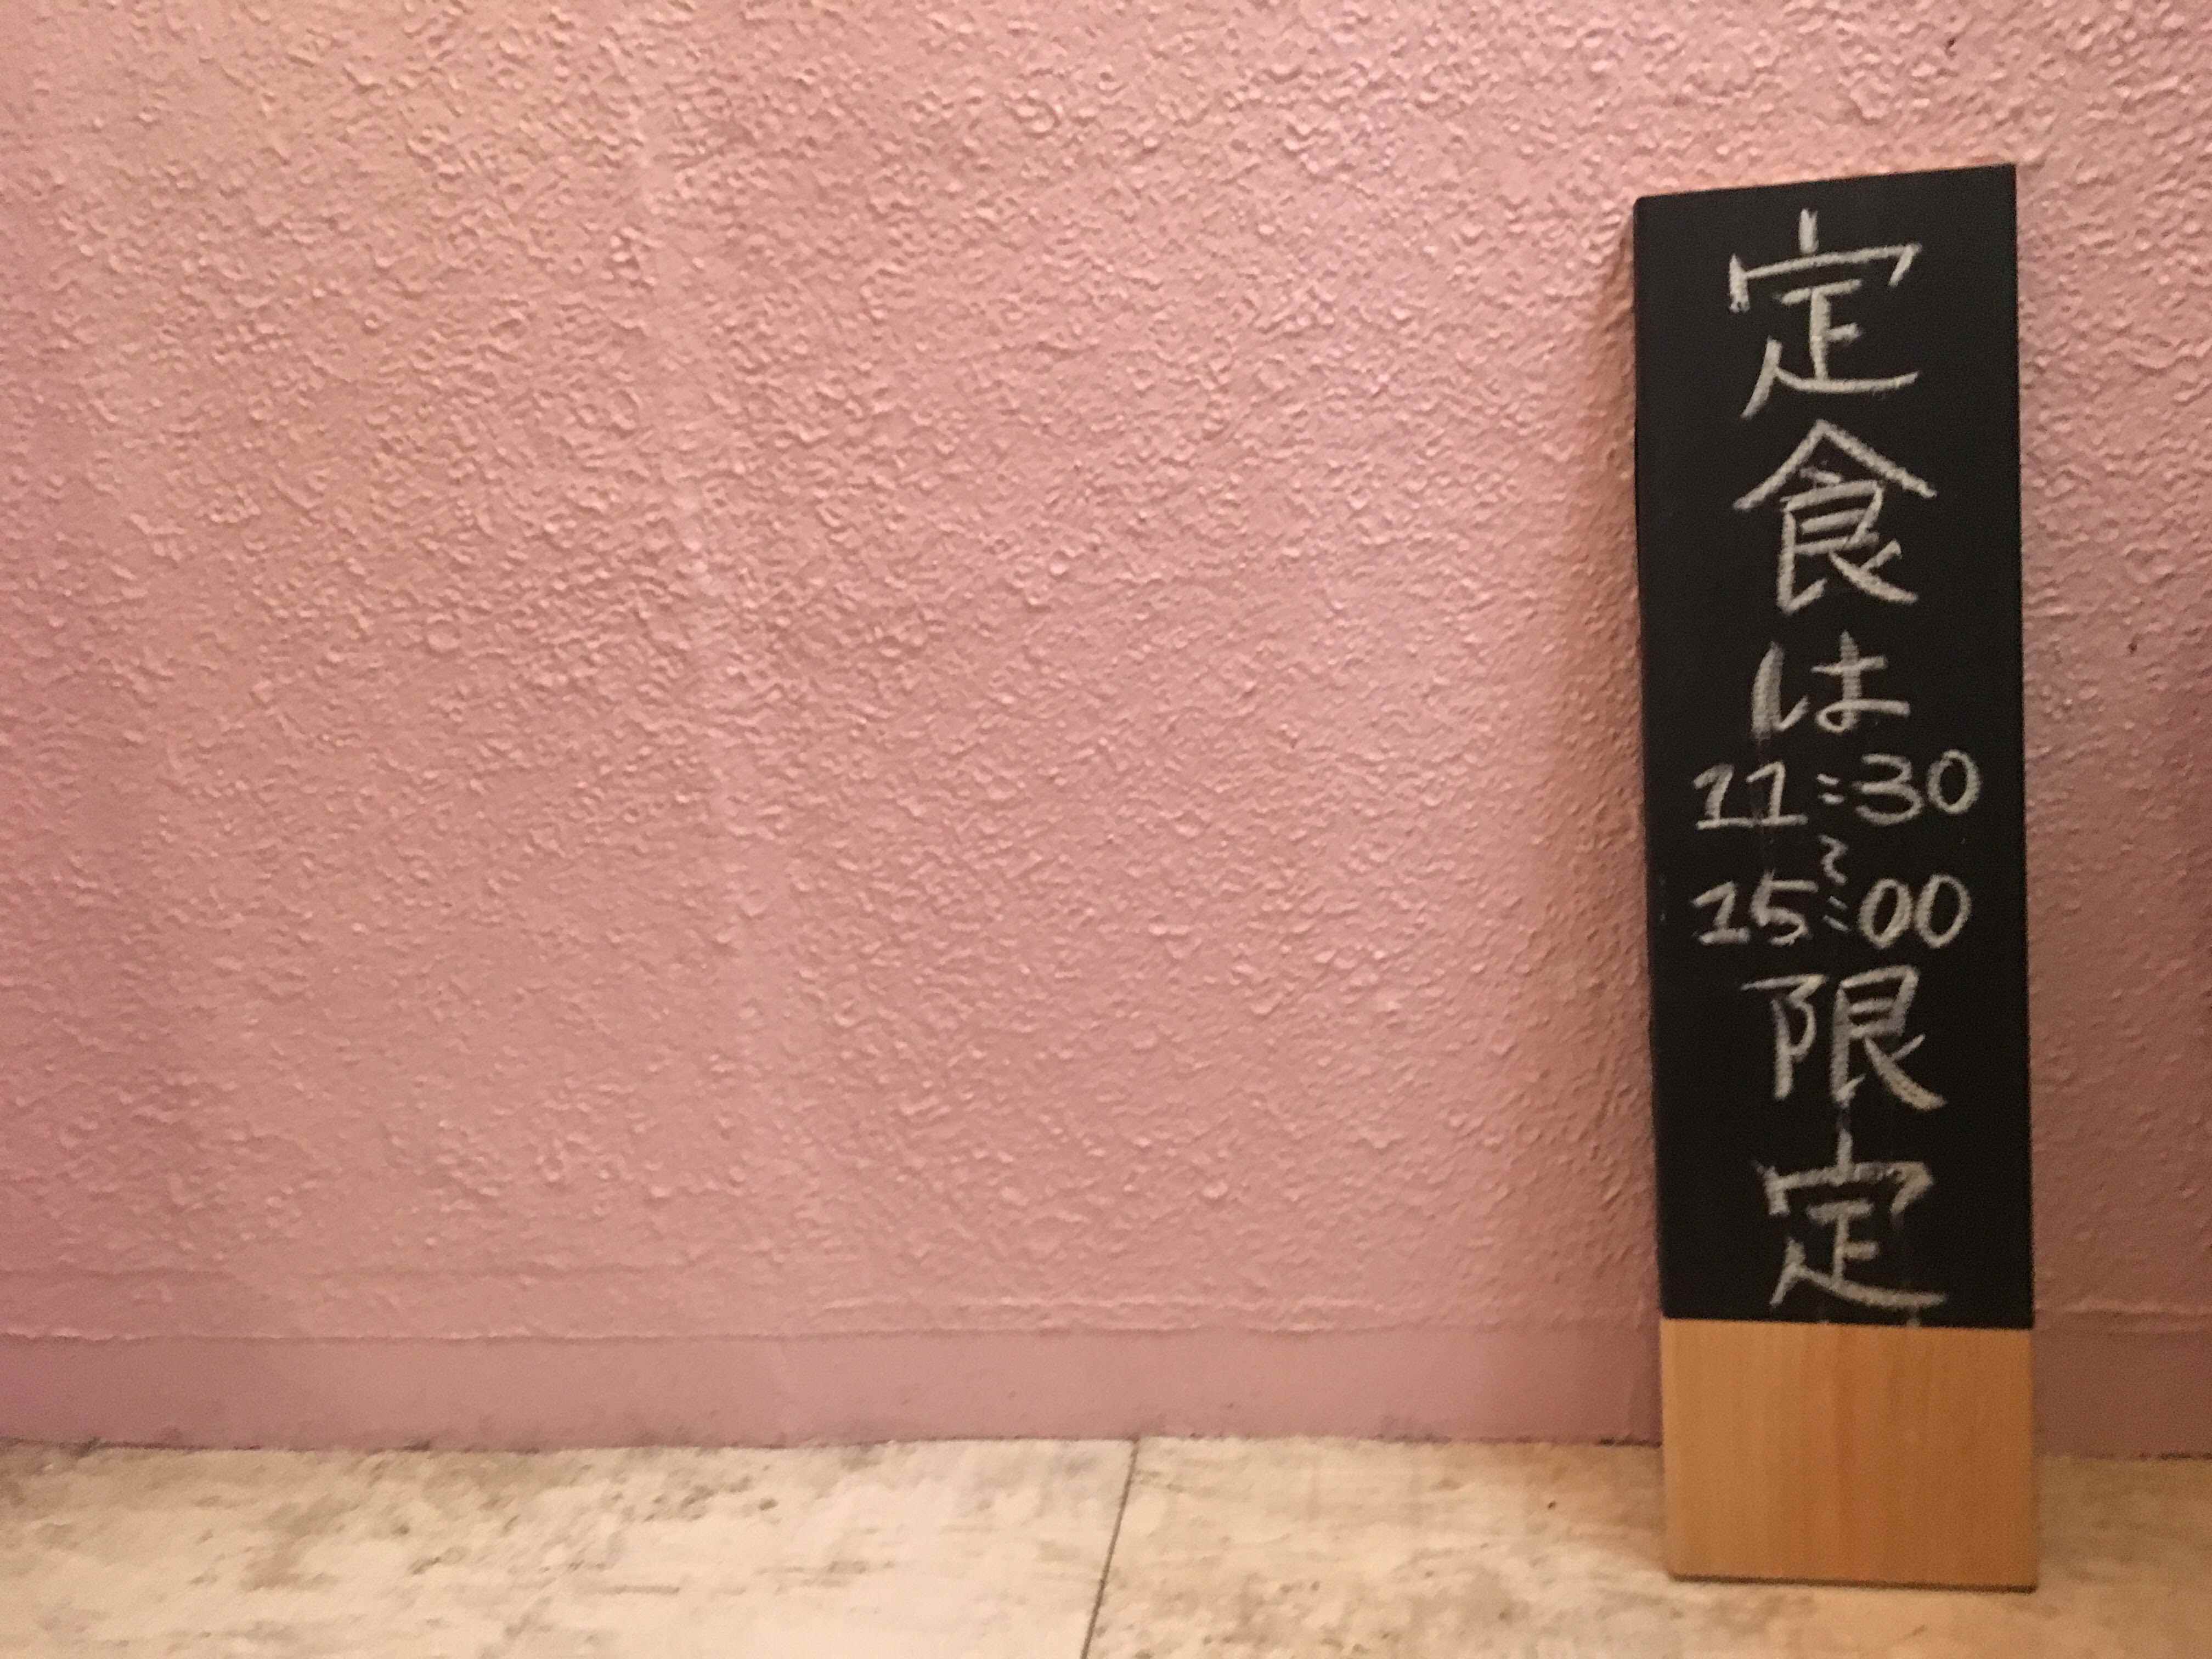 定食は
11:30
〜
15:00
限定